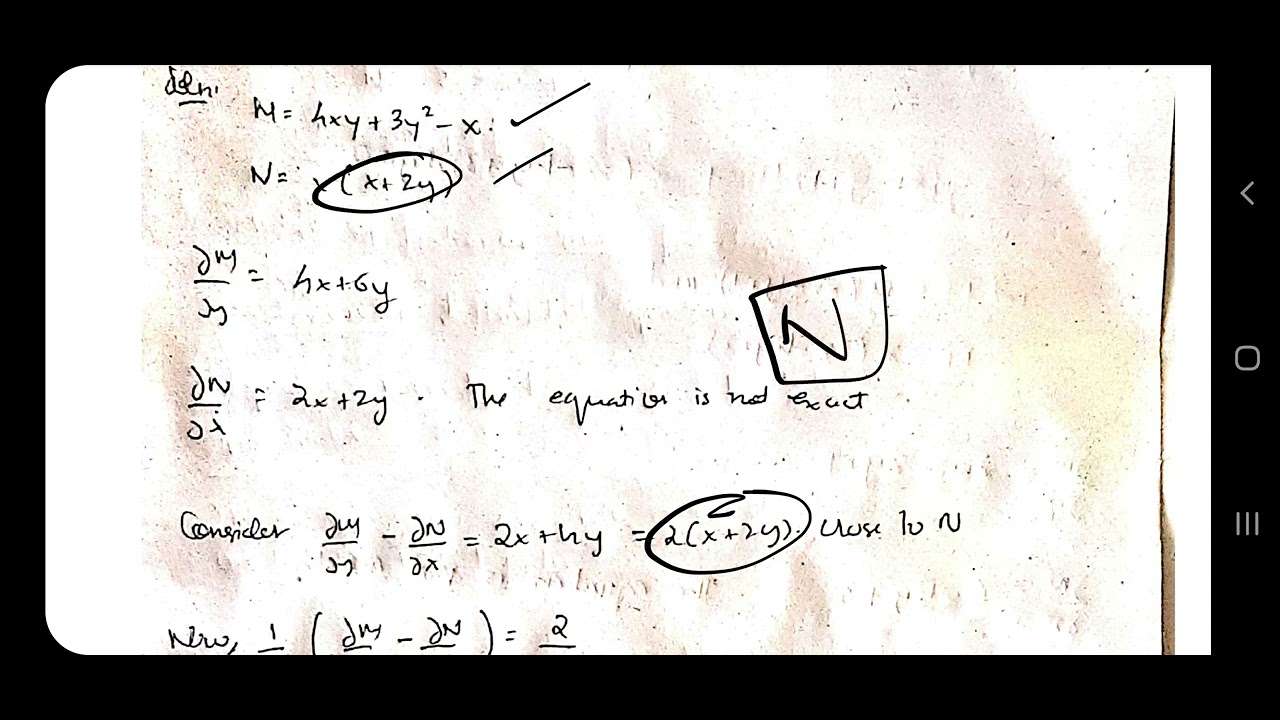 Soln.
M = 4xy + 3y² - x.
N = x(x+2y)
∂M/∂y = 4x+6y
N
∂N/∂x = 2x+2y. The equation is not exact
Consider ∂M/∂y - ∂N/∂x = 2x+4y = 2(x+2y). close to N
Now, 1 ( ∂M - ∂N ) = 2